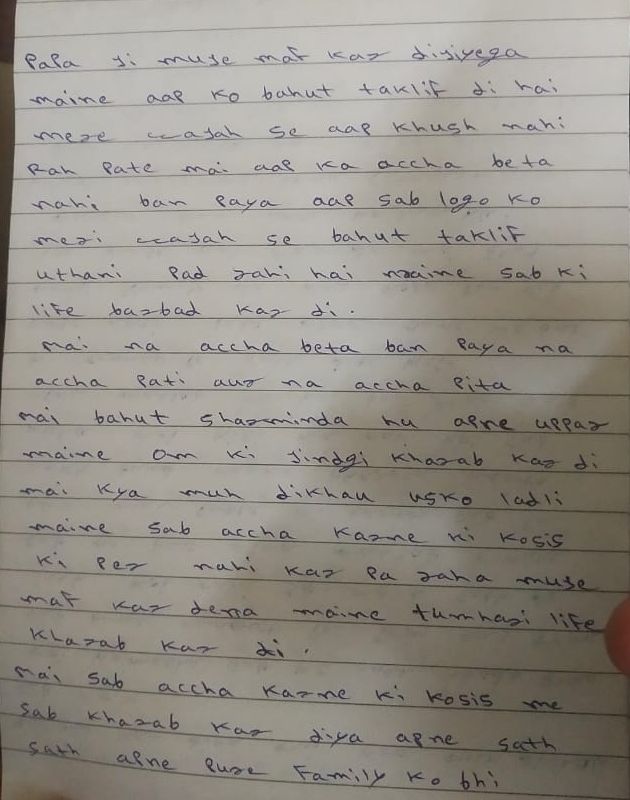 PaPa Ji muje maf kar dijiyega
maine aap ko bahut taklif di hai
mere wajah se aap khush nahi
Rah Pate mai aap ka accha beta
nahi ban Paya aap sab logo ko
meri wajah se bahut taklif
uthani Pad rahi hai maine sab ki
life barbad kar di.
mai na accha beta ban Paya na
accha Pati aur na accha Pita
mai bahut sharminda hu apne uppar
maine om ki jindgi kharab kar di
mai kya muh dikhau usko ladli
maine sab accha karne ki kosis
ki per nahi kar pa raha muje
maf kar dena maine tumhari life
kharab kar di.
mai sab accha karne ki kosis me
sab kharab kar diya apne sath
sath apne pure Family ko bhi